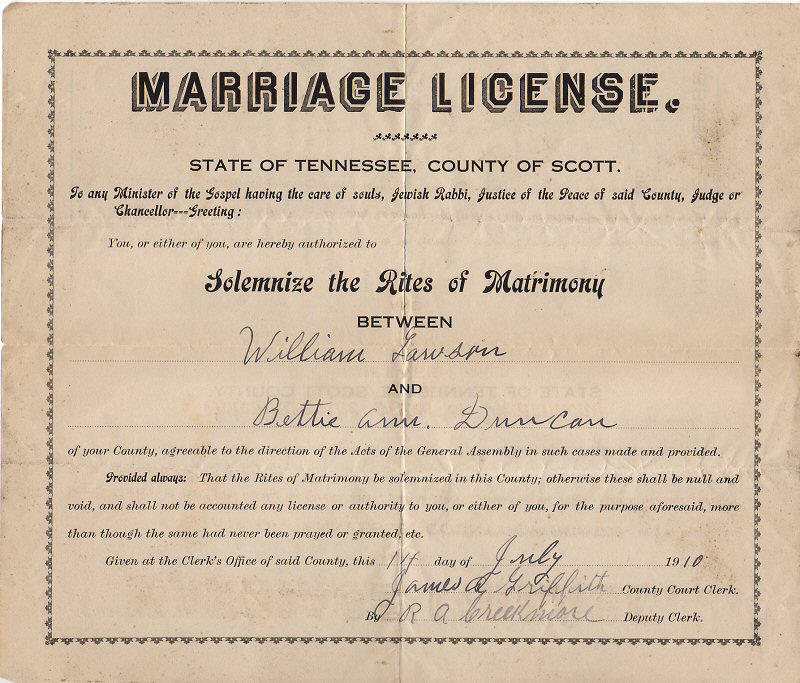 MARRIAGE LICENSE.
STATE OF TENNESSEE, COUNTY OF SCOTT.
To any Minister of the Gospel having the care of souls, Jewish Rabbi, Justice of the Peace of said County, Judge or
Chancellor---Greeting:
You, or either of you, are hereby authorized to
Solemnize the Rites of Matrimony
BETWEEN
William Lawson
AND
Bettie Ann. Duncan
of your County, agreeable to the direction of the Acts of the General Assembly in such cases made and provided.
Provided always: That the Rites of Matrimony be solemnized in this County; otherwise these shall be null and
void, and shall not be accounted any license or authority to you, or either of you, for the purpose aforesaid, more
than though the same had never been prayed or granted, etc.
Given at the Clerk's Office of said County, this 14 day of July 1910
James Griffith County Court Clerk.
By R A Creekmore Deputy Clerk.